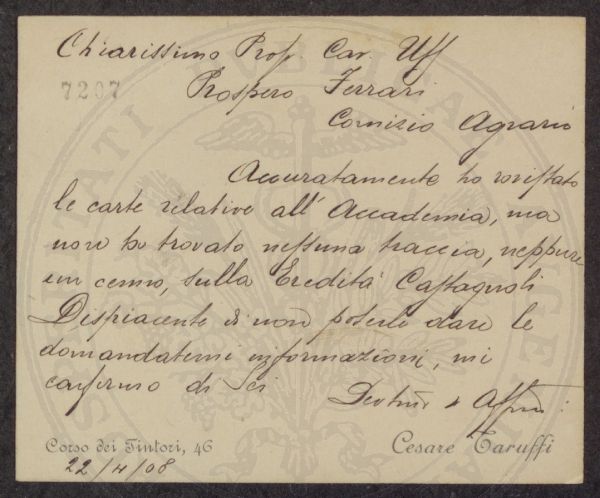 Chiarissimo Prof. Cav. Uff
7207
Prospero Ferrari
Comizio Agrario
Accuratamente ho rovistato
le carte relative all'Accademia, ma
non ho trovato nessuna traccia, neppure
un cenno, sulla Eredità Castagnoli
Despiacente di non poterle dare le
domandatemi informazioni, mi
confermo di Lei
Devmo e Affmo
Corso dei Tintori, 46
Cesare Taruffi
22/4/08